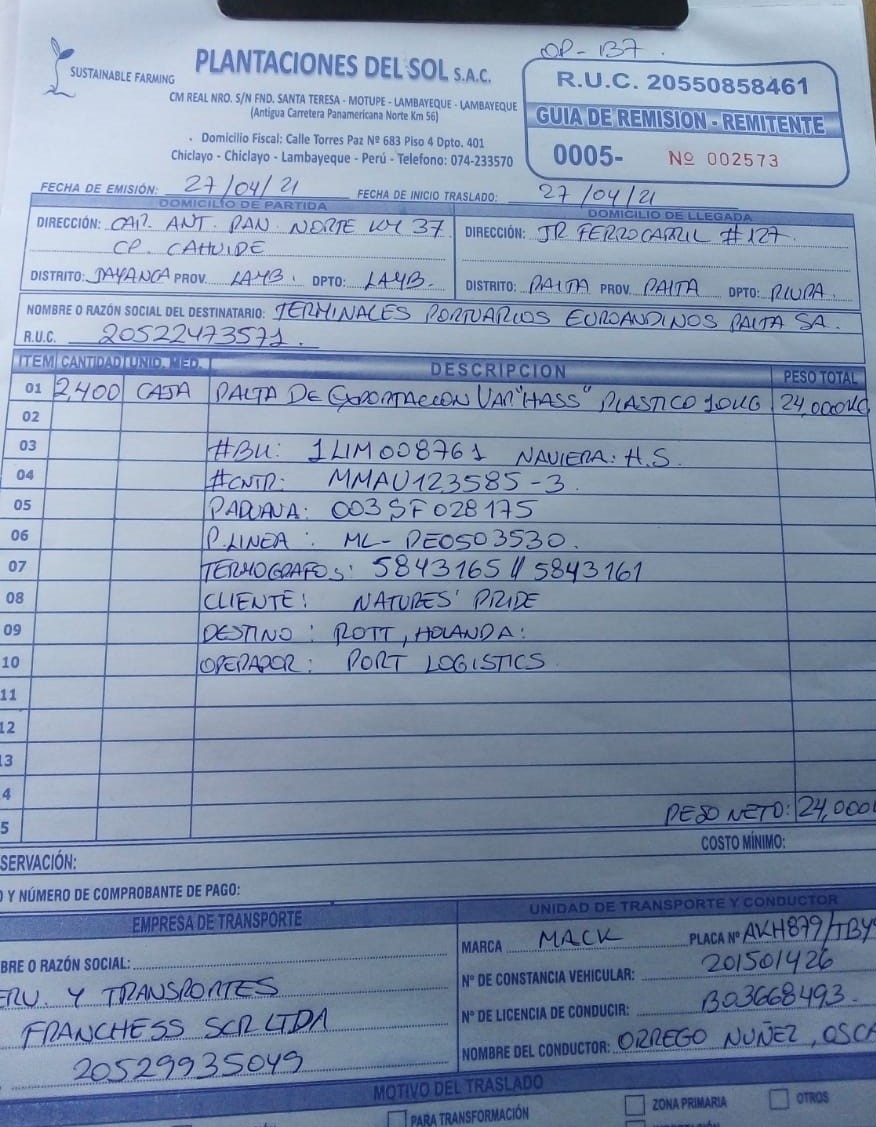 OP-137.
SUSTAINABLE FARMING
PLANTACIONES DEL SOL S.A.C.
CM REAL NRO. S/N FND. SANTA TERESA - MOTUPE - LAMBAYEQUE - LAMBAYEQUE
(Antigua Carretera Panamericana Norte Km 56)
Domicilio Fiscal: Calle Torres Paz Nº 683 Piso 4 Dpto. 401
Chiclayo - Chiclayo - Lambayeque - Perú - Telefono: 074-233570
R.U.C. 20550858461
GUIA DE REMISION - REMITENTE
0005- Nº 002573
FECHA DE EMISIÓN: 27/04/21 FECHA DE INICIO TRASLADO: 27/04/21
DOMICILIO DE PARTIDA DOMICILIO DE LLEGADA
DIRECCIÓN: CAR. ANT. PAN. NORTE KM 37 DIRECCIÓN: JR FERROCARRIL #127.
CP. CAHUIDE
DISTRITO: JAYANCA PROV. LAMB. DPTO: LAMB. DISTRITO: PAITA PROV. PAITA DPTO: PIURA.
NOMBRE O RAZÓN SOCIAL DEL DESTINATARIO: TERMINALES PORTUARIOS EUROANDINOS PAITA SA.
R.U.C. 20522473571.
ITEM CANTIDAD UNID. MED. DESCRIPCION PESO TOTAL
01 2,400 CAJA PALTA DE EXPORTACION VAR "HASS" PLASTICO 10KG 24,000KG
02
03 #BK: 1LIM008761 NAVIERA: H.S.
04 #CNTR: MMAU123585-3
05 P.ADUANA: 003SF028175
06 P.LINEA: ML-PE0503530.
07 TERMOGRAFOS: 5843165 // 5843161
08 CLIENTE: NATURES' PRIDE
09 DESTINO: ROTT, HOLANDA:
10 OPERADOR: PORT LOGISTICS
11
12
13
4
5 PESO NETO: 24,000
COSTO MÍNIMO:
SERVACIÓN:
O Y NÚMERO DE COMPROBANTE DE PAGO:
EMPRESA DE TRANSPORTE UNIDAD DE TRANSPORTE Y CONDUCTOR
BRE O RAZÓN SOCIAL: MARCA MACK PLACA Nº AKH879/TBY
ERV. Y TRANSPORTES Nº DE CONSTANCIA VEHICULAR: 201501426
FRANCHESS SCR LTDA Nº DE LICENCIA DE CONDUCIR: B03668493.
20529935049 NOMBRE DEL CONDUCTOR: ORREGO NUÑEZ, OSCA
MOTIVO DEL TRASLADO
PARA TRANSFORMACIÓN ZONA PRIMARIA OTROS